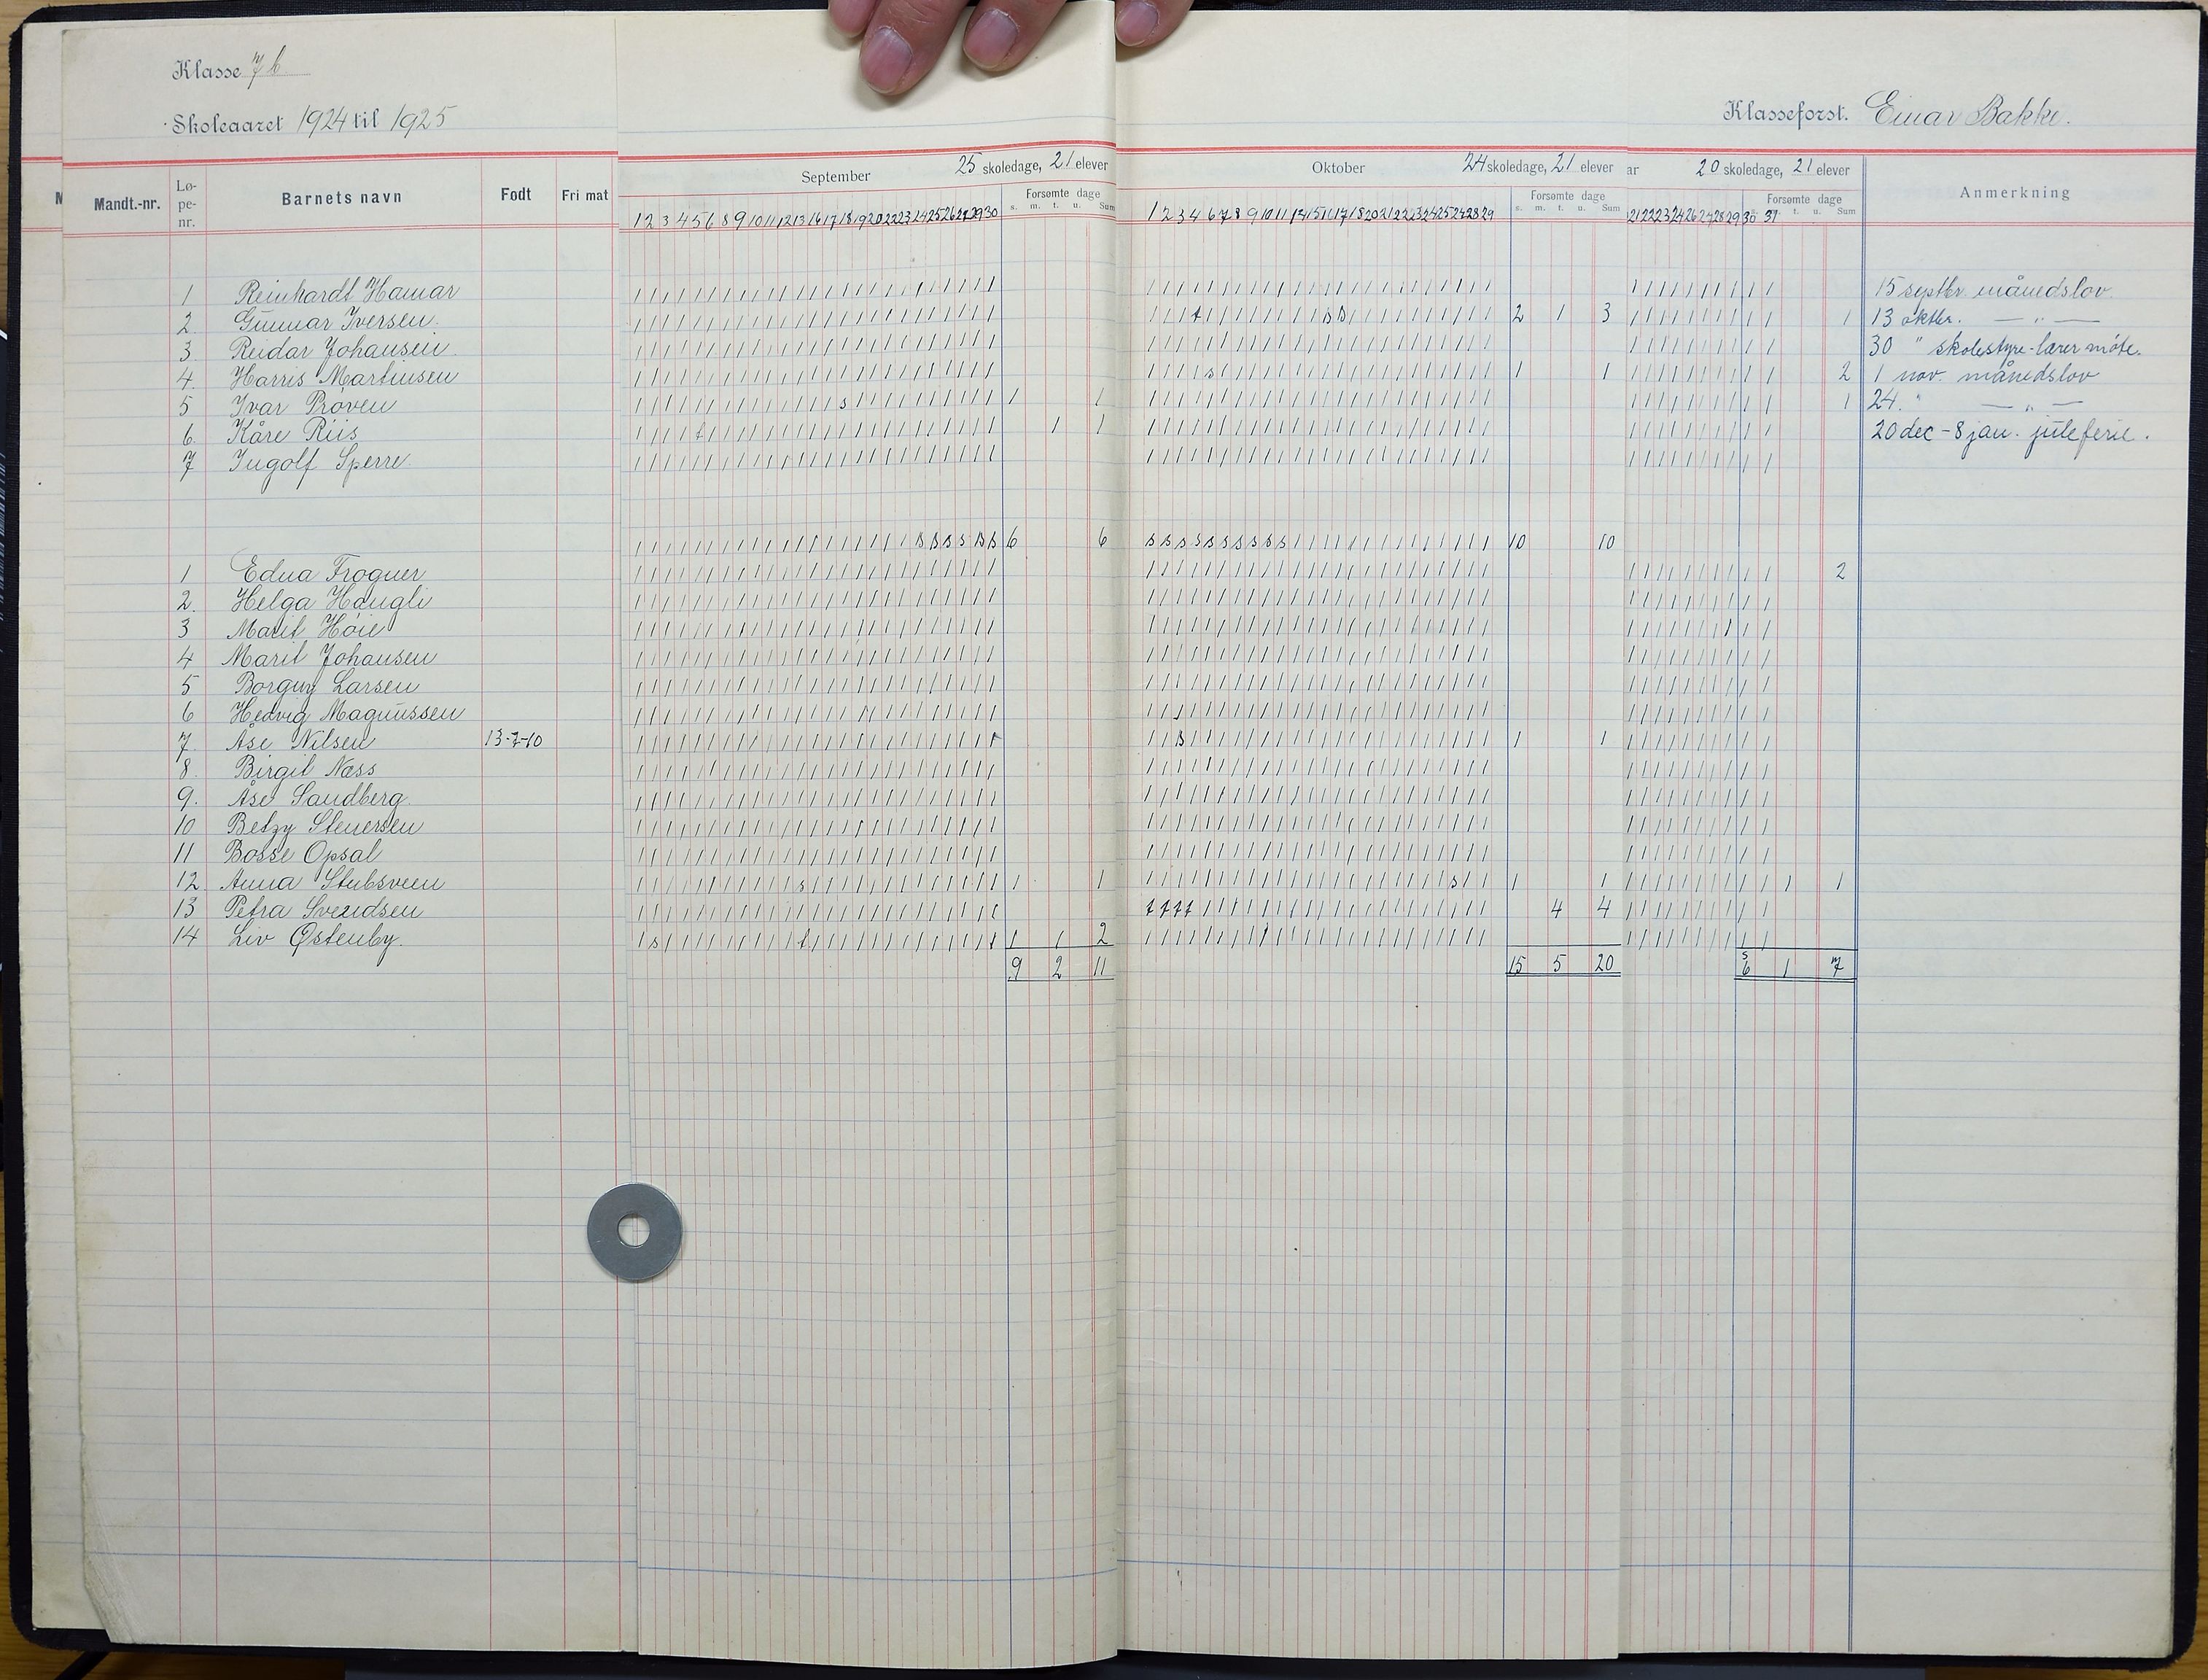 Klasse 7 b
Skoleaaret 1924 til 1925
Klasseforst. Einar Bakke.
Mandt.-nr.
Lø-
pe-
nr.
Barnets navn
Født
Fri mat
September
25 skoledage, 21 elever
Forsømte dage
s. m. t. u. Sum
1 2 3 4 5 6 8 9 10 11 12 13 16 17 18 19 20 22 23 24 25 26 27 29 30
Oktober
24 skoledage, 21 elever
Forsømte dage
s. m. t. u. Sum
1 2 3 4 6 7 8 9 10 11 14 15 16 17 18 20 21 22 23 24 25 27 28 29
ar
20 skoledage, 21 elever
Forsømte dage
t. u. Sum
21 22 23 24 26 27 28 29 30 31
Anmerkning
1 Reinhardt Hamar
15 septbr. månedslov
2. Gunnar Iversen. 2 1 3 1
13 oktbr. — " —
3 Reidar Johansen.
30 " skolestyre-lærermøte.
4. Harris Martinsen 1 1 2
1 nov. månedslov
5 Ivar Prøven 1 1 1
24. " — " —
6. Kåre Riis 1 1
20 dec - 8 jan. juleferie.
7 Ingolf Sperre.
6 6 10 10
1 Edna Frogner 2
2. Helga Haugli
3 Marit Høie
4 Marit Johansen
5 Borguy Larsen
6 Hedvig Magnussen
7. Åse Nilsen 13-7-10 1 1
8. Birgit Næss
9. Åse Sandberg.
10 Betzy Stenersen
11 Bosse Opsal
12 Anna Stubsveen 1 1 1 1 1 1
13 Petra Svendsen 4 4
14 Liv Østenby. 1 1 2
9 2 11
15 5 20
s 6 1 7